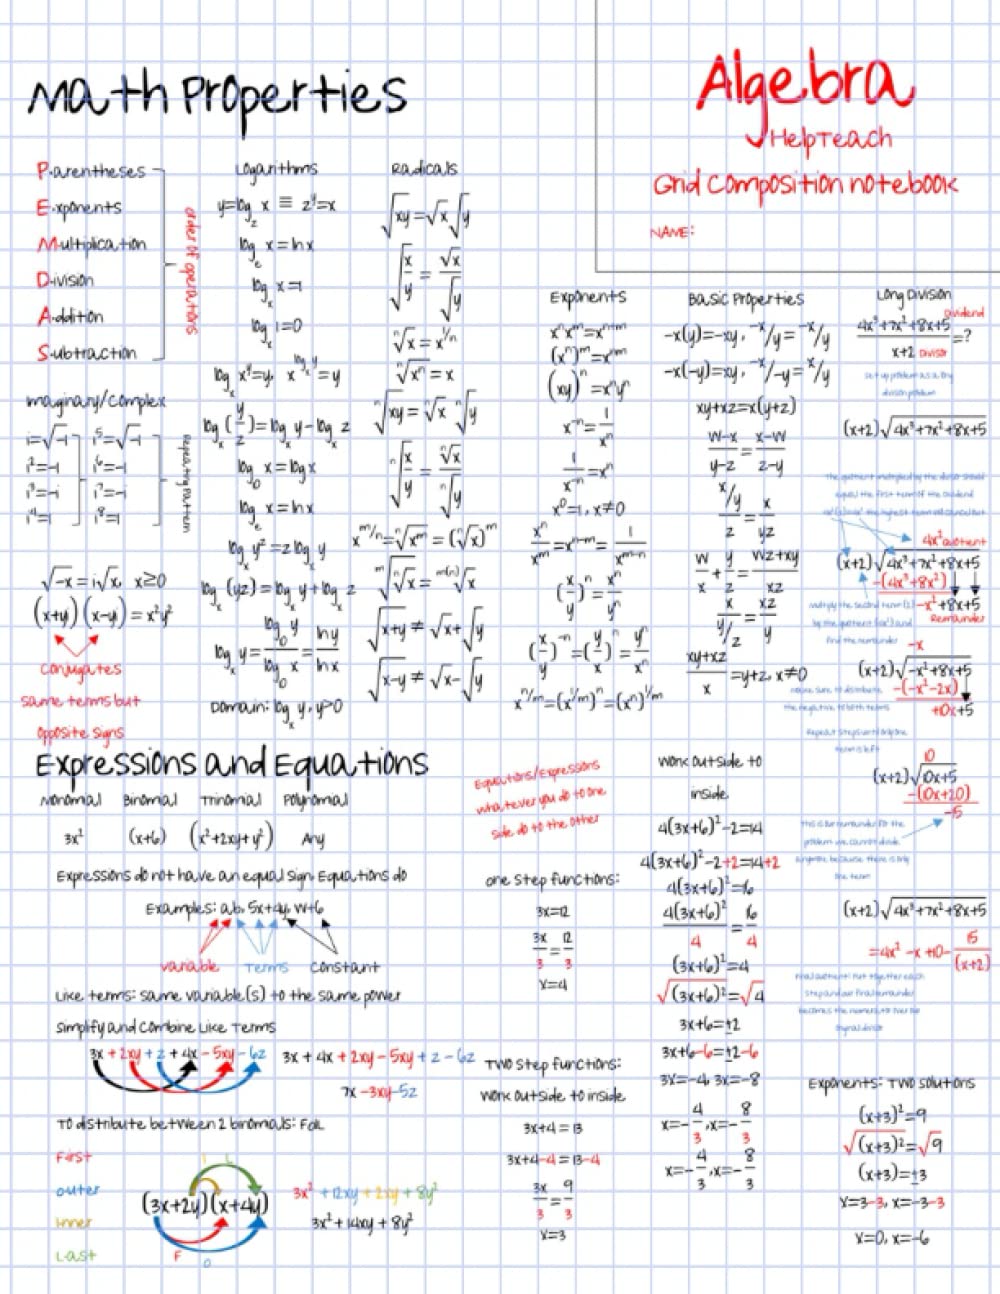 Math Properties
Algebra
HelpTeach
Grid Composition notebook
NAME:
Parentheses
Exponents
Multiplication
Division
Addition
Subtraction
order of operations
Imaginary/Complex
i=√-1 i⁵=√-1
i²=-1 i⁶=-1
i³=-i i⁷=-i
i⁴=1 i⁸=1
Repeating pattern
√-x = i√x, x≥0
(x+y)(x-y) = x²y²
Conjugates
same terms but
opposite signs
Logarithms
y=log_z x ≡ z^y=x
log_e x = ln x
log_x x =1
log_x 1=0
log_x x^y=y, x^(log_x y)=y
log_x (y/z)=log_x y-log_x z
log_10 x = log x
log_e x = ln x
log_x y² =z log_x y
log_x (yz)=log_x y+log_x z
log_x y = log_10 y/log_10 x = ln y/ln x
Domain: log_x y, y>0
Radicals
√xy = √x √y
√(x/y) = √x/√y
ⁿ√x = x^(1/n)
ⁿ√xⁿ = x
ⁿ√xy = ⁿ√x ⁿ√y
ⁿ√(x/y) = ⁿ√x/ⁿ√y
x^(m/n) = ⁿ√x^m = (ⁿ√x)^m
^m√ⁿ√x = ^(m(n))√x
√x+y ≠ √x+√y
√x-y ≠ √x-√y
Exponents
xⁿx^m=x^(n+m)
(xⁿ)^m=x^(nm)
(xy)ⁿ=xⁿyⁿ
x^-n = 1/xⁿ
1/x^-n = xⁿ
x⁰=1, x≠0
xⁿ/x^m = x^(n-m) = 1/x^(m-n)
(x/y)ⁿ = xⁿ/yⁿ
(x/y)^-n = (y/x)ⁿ = yⁿ/xⁿ
x^(n/m)=(x^(1/m))ⁿ=(xⁿ)^(1/m)
Basic Properties
-x(y)=-xy, -x/y = -x/y
-x(-y)=xy, -x/-y = x/y
xy+xz=x(y+z)
w-x/y-z = x-w/z-y
x/y/z = x/yz
w/x + y/z = wz+xy/xz
x/y/z = xz/y
xy+xz/x = y+z, x≠0
Long Division
4x³+7x²+8x+5 Dividend
x+2 Divisor =?
set up problem as a long
division problem
(x+2)√4x³+7x²+8x+5
the quotient multiplied by the divisor should
equal the first term of the dividend
4x² quotient
(x+2)√4x³+7x²+8x+5
-(4x³+8x²)
multiply the second term (2) -x²+8x+5
by the quotient (4x²) and Remainder
find the remainder
-x
(x+2)√-x²+8x+5
make sure to distribute -(-x²-2x)
the negative to both terms +10x+5
Repeat steps until only one
term is left
10
(x+2)√10x+5
-(10x+20)
-15
this is our remainder for the
problem we cannot divide
anymore because there is only
one term
(x+2)√4x³+7x²+8x+5
=4x²-x+10-15/(x+2)
final quotient: put together each
step and our final remainder
Expressions and Equations
Monomial Binomial Trinomial Polynomial
3x² (x+6) (x²+2xy+y²) Any
Expressions do not have an equal sign Equations do
Examples: ab, 5x+4y, w+6
variable Terms Constant
Like terms: same variable(s) to the same power
Simplify and Combine Like Terms
3x + 2xy + z + 4x - 5xy - 6z 3x + 4x + 2xy - 5xy + z - 6z
7x -3xy-5z
To distribute between 2 binomials: Foil
First
outer
inner
Last
(3x+2y)(x+4y)
F
O
I
L
3x² + 12xy + 2xy + 8y²
3x² + 14xy + 8y²
Equations/Expressions
whatever you do to one
side do to the other
one step functions:
3x=12
3x/3 = 12/3
x=4
Two step functions:
Work outside to inside
3x+4=13
3x+4-4=13-4
3x/3 = 9/3
x=3
Work outside to
inside
4(3x+6)²-2=14
4(3x+6)²-2+2=14+2
4(3x+6)²=16
4(3x+6)²/4 = 16/4
(3x+6)²=4
√(3x+6)²=√4
3x+6=±2
3x+6-6=±2-6
3x=-4, 3x=-8
x=-4/3, x=-8/3
x=-4/3, x=-8/3
Exponents: Two solutions
(x+3)²=9
√(x+3)²=√9
(x+3)=±3
x=3-3, x=-3-3
x=0, x=-6